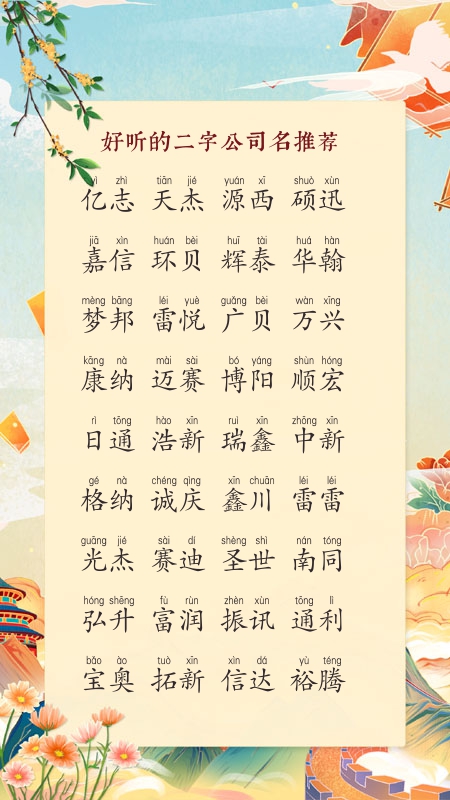 好听的二字公司名推荐
yì zhì tiān jié yuán xī shuò xùn
亿志 天杰 源西 硕迅
jiā xìn huán bèi huī tài huá hàn
嘉信 环贝 辉泰 华翰
mèng bāng léi yuè guǎng bèi wàn xīng
梦邦 雷悦 广贝 万兴
kāng nà mài sài bó yáng shùn hóng
康纳 迈赛 博阳 顺宏
rì tōng hào xīn ruì xīn zhōng xīn
日通 浩新 瑞鑫 中新
gé nà chéng qìng xīn chuān léi léi
格纳 诚庆 鑫川 雷雷
guāng jié sài dí shèng shì nán tóng
光杰 赛迪 圣世 南同
hóng shēng fù rùn zhèn xùn tōng lì
弘升 富润 振讯 通利
bǎo ào tuò xīn xìn dá yù téng
宝奥 拓新 信达 裕腾